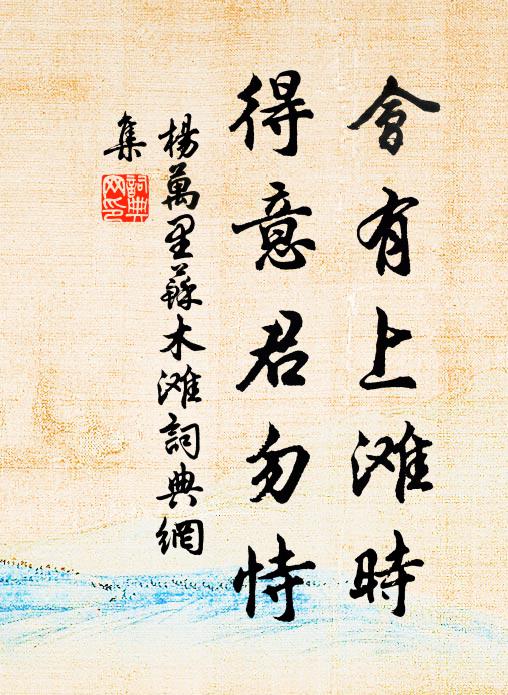 會有上滩時
得意君勿恃
楊萬里蘇木滩詞典網
集
詞典
网印